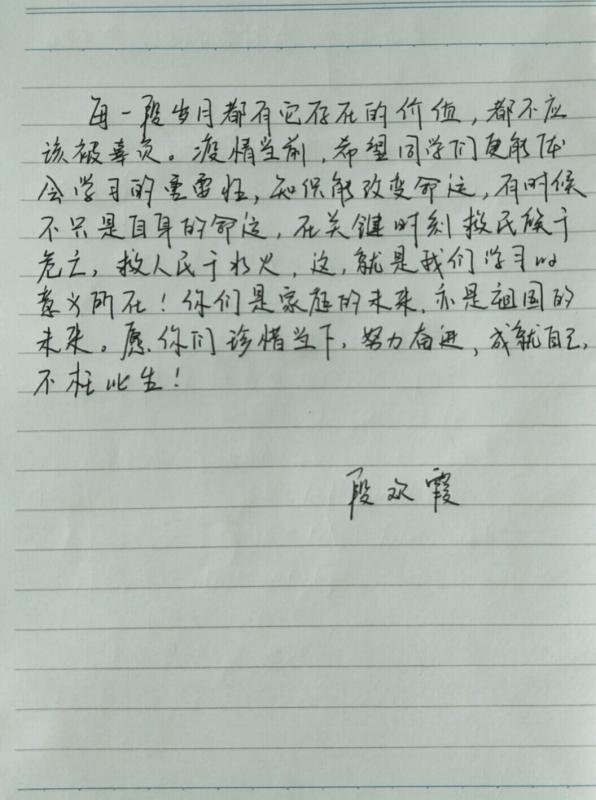 每一段岁月都有它存在的价值，都不应
该被辜负。疫情当前，希望同学们更能体
会学习的重要性，知识能改变命运，有时候
不只是自身的命运，在关键时刻救民族于
危亡，救人民于水火，这，就是我们学习的
意义所在！你们是家庭的未来，亦是祖国的
未来。愿你们珍惜当下，努力奋进，成就自己，
不枉此生！
段欢霞